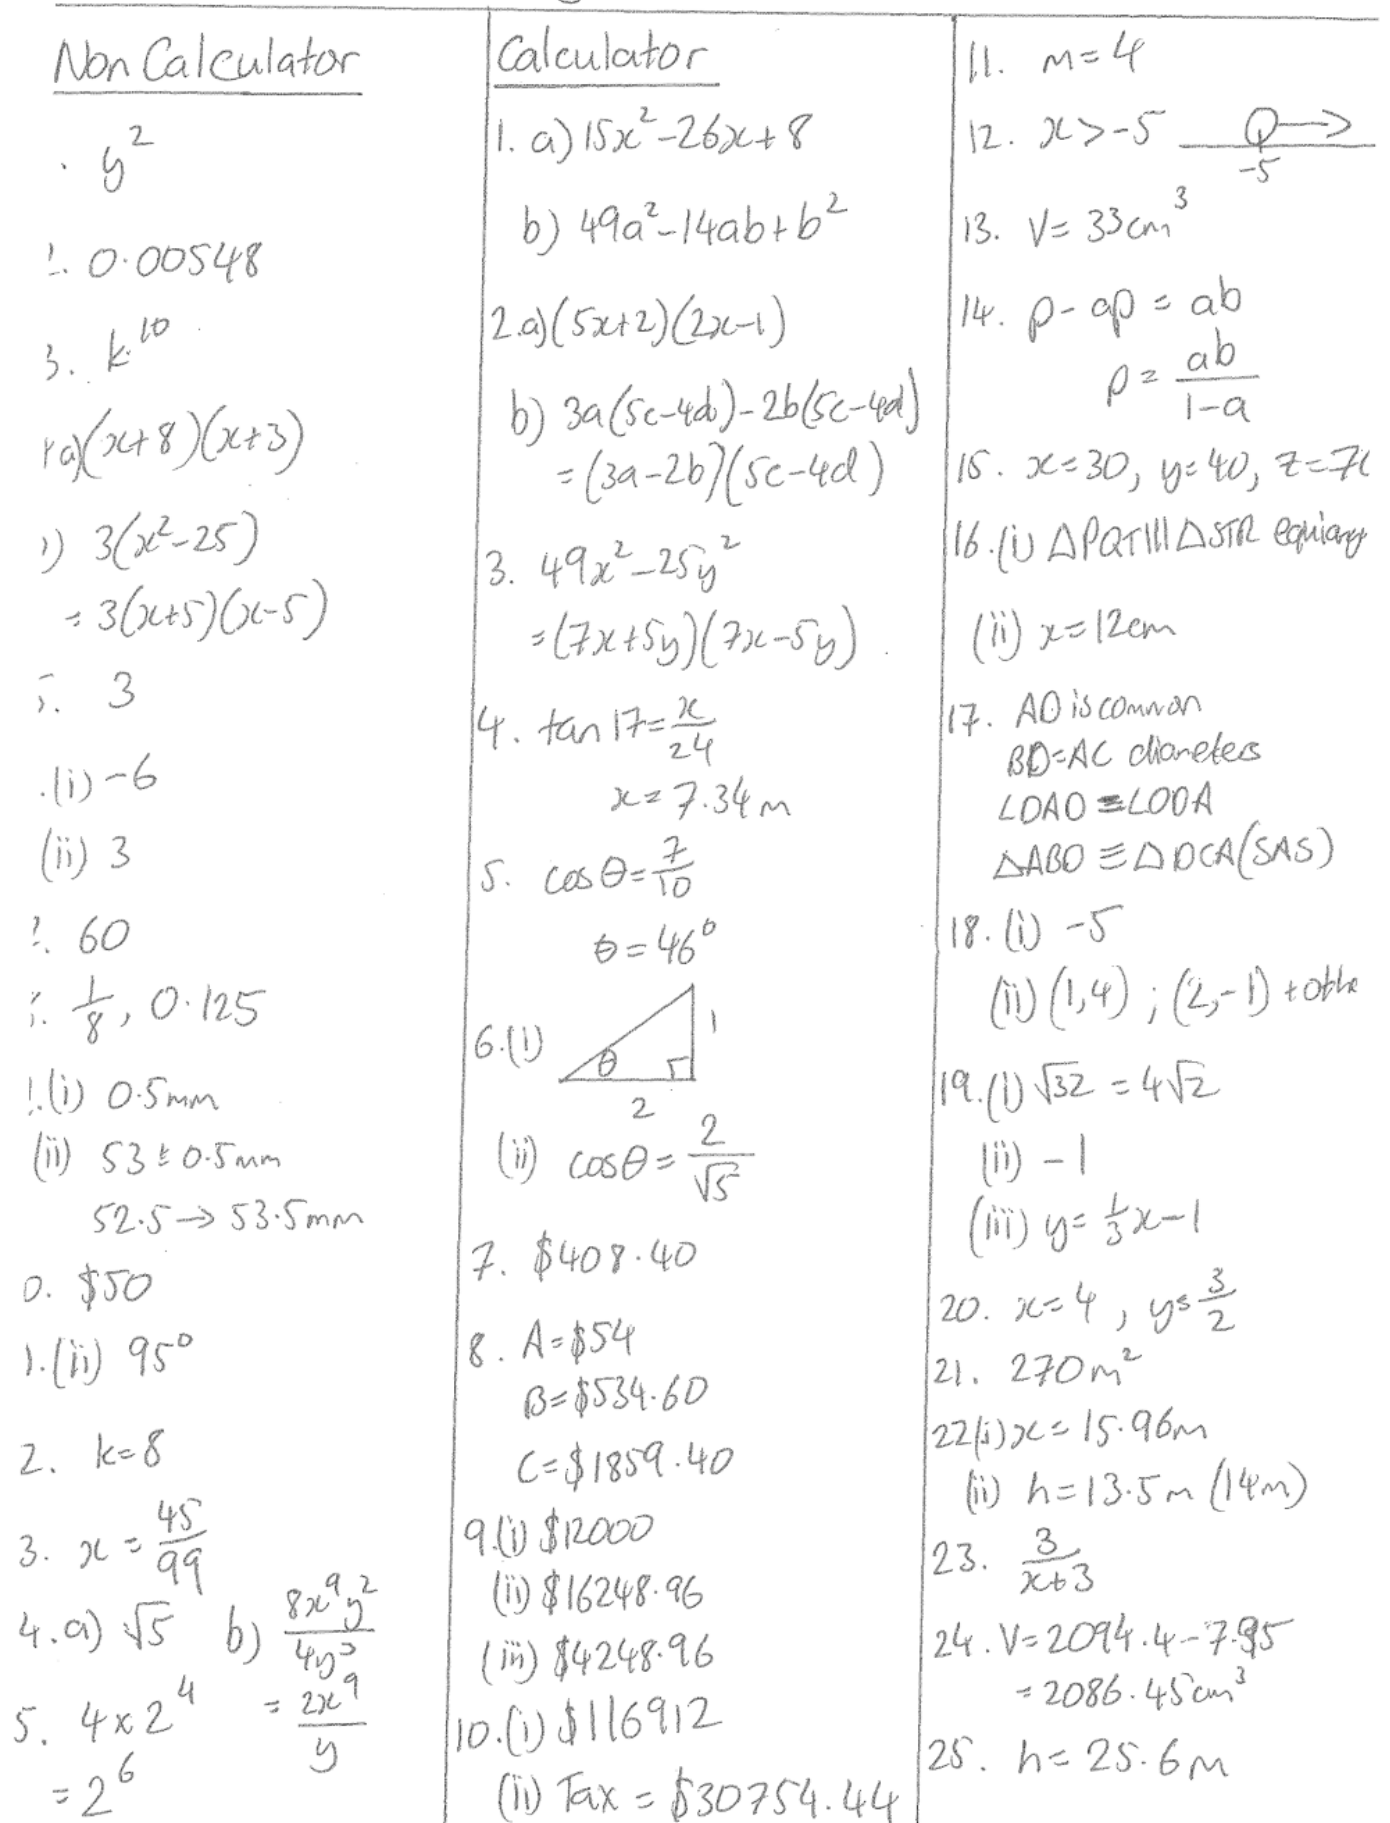 Non Calculator
. y²
2. 0.00548
3. k¹⁰
a) (x+8)(x+3)
) 3(x²-25)
= 3(x+5)(x-5)
5. 3
.(i) -6
(ii) 3
. 60
. 1/8, 0.125
.(i) 0.5mm
(ii) 53 ± 0.5mm
52.5 → 53.5mm
0. $50
1.(ii) 95°
2. k=8
3. x = 45/99
4. a) √5 b) 8x⁹y²/4y³
= 2x⁹/y
5. 4×2⁴
= 2⁶
Calculator
1. a) 15x²-26x+8
b) 49a²-14ab+b²
2.a) (5x+2)(2x-1)
b) 3a(5c-4d)-2b(5c-4d)
= (3a-2b)(5c-4d)
3. 49x²-25y²
= (7x+5y)(7x-5y)
4. tan 17 = x/24
x = 7.34m
5. cosθ = 7/10
θ = 46°
6.(i) θ 1
2
(ii) cosθ = 2/√5
7. $408.40
8. A=$54
B=$534.60
C=$1859.40
9.(i) $12000
(ii) $16248.96
(iii) $4248.96
10.(i) $116912
(ii) Tax = $30754.44
11. m=4
12. x>-5
-5
13. V= 33cm³
14. p-ap = ab
p = ab/1-a
15. x=30, y=40, z=70
16.(i) △PQT|||△STR equiang
(ii) x=12cm
17. AD is common
BD=AC diameters
∠DAO = ∠ODA
△ABD ≡ △DCA (SAS)
18.(i) -5
(ii) (1,4) ; (2,-1) + othe
19.(i) √32 = 4√2
(ii) -1
(iii) y= 1/3x-1
20. x=4, y= 3/2
21. 270m²
22(i) x= 15.96m
(ii) h=13.5m (14m)
23. 3/x+3
24. V=2094.4-7.95
= 2086.45cm³
25. h= 25.6m